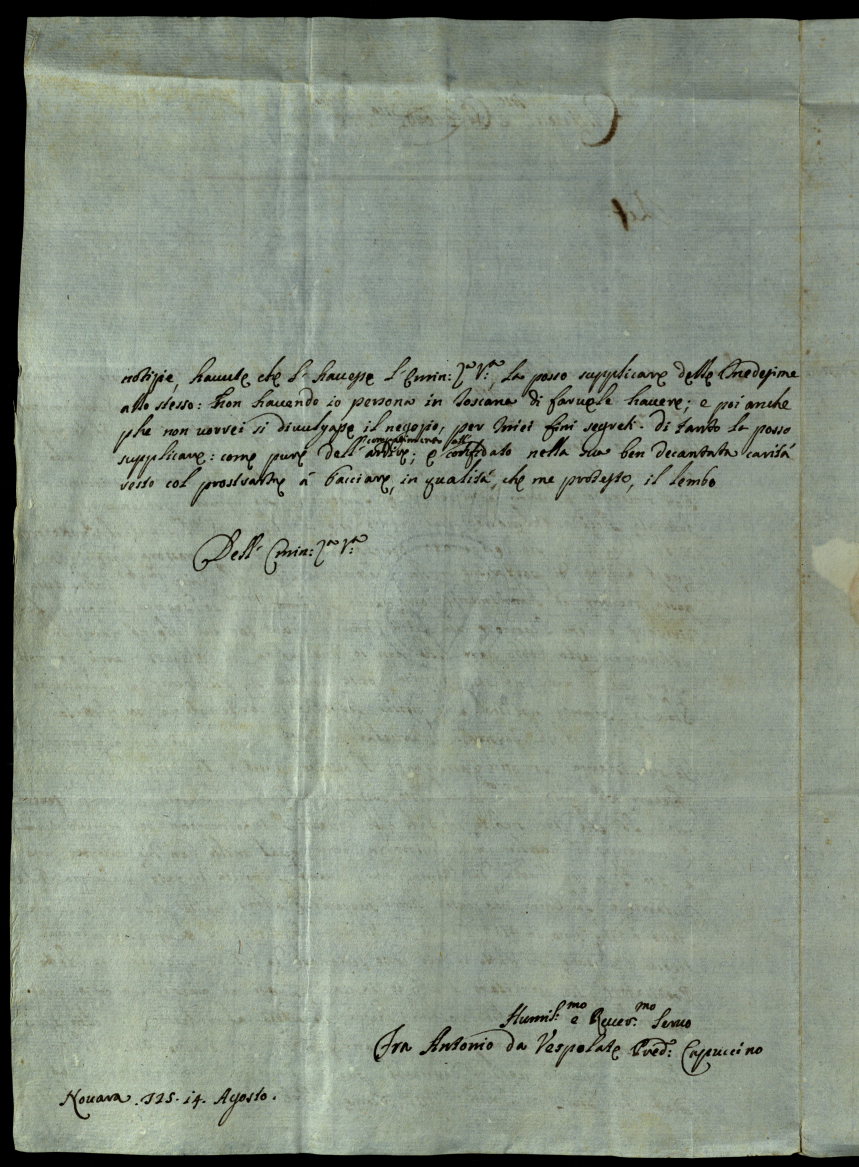 notizie, havute che l' havesse l' Emin: Za Va, la posso supplicare delle medesime
allo stesso: non havendo io persona in Toscana di faruele havere; e poi anche
phe non vorrei si divulgasse il negozio, per miei fini segreti. di tanto la posso
supplicare: come pure dell' ardire; e confidato nella sua ben decantata carità
resto col prostrarme à bacciare, in qualità, che me protesto, il lembo
Dell' Emin: Za Va
Humil:mo e Rever:mo Servo
Fra Antonio da Vespolate Pred: Capuccino
Novara. 725. 14. Agosto.